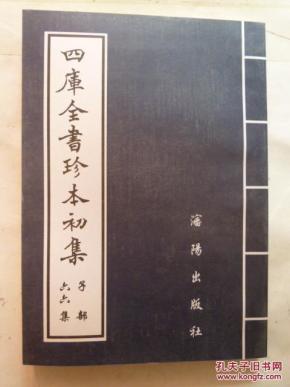 四庫全書珍本初集
子部
六六集
瀋陽出版社
孔夫子旧书网
www.kongfz.com